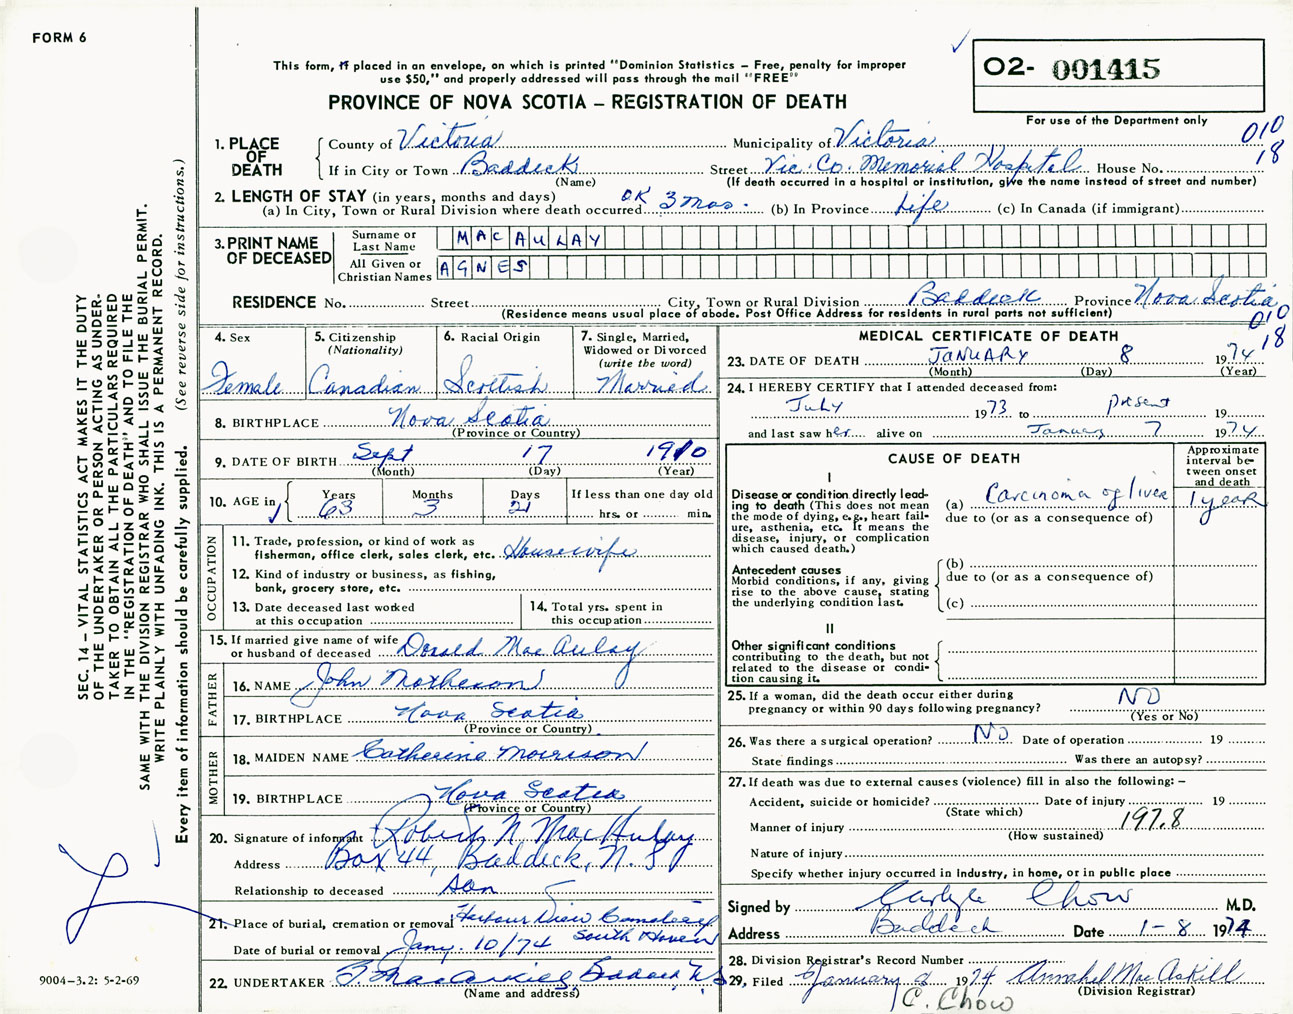 FORM 6
This form, if placed in an envelope, on which is printed "Dominion Statistics – Free, penalty for improper
use $50," and properly addressed will pass through the mail "FREE"
PROVINCE OF NOVA SCOTIA – REGISTRATION OF DEATH
O2- 001415
For use of the Department only
010
18
1. PLACE OF DEATH
County of Victoria Municipality of Victoria
If in City or Town Baddeck (Name) Street Vic. Co. Memorial Hospital House No.
(If death occurred in a hospital or institution, give the name instead of street and number)
2. LENGTH OF STAY (in years, months and days)
(a) In City, Town or Rural Division where death occurred OK 3 mos. (b) In Province Life (c) In Canada (if immigrant)
3. PRINT NAME OF DECEASED
Surname or Last Name MACAULAY
All Given or Christian Names AGNES
RESIDENCE No. Street City, Town or Rural Division Baddeck Province Nova Scotia
(Residence means usual place of abode. Post Office Address for residents in rural parts not sufficient)
010
18
4. Sex Female
5. Citizenship (Nationality) Canadian
6. Racial Origin Scottish
7. Single, Married, Widowed or Divorced (write the word) Married
8. BIRTHPLACE Nova Scotia
(Province or Country)
9. DATE OF BIRTH Sept 17 1910
(Month) (Day) (Year)
10. AGE in Years 63 Months 3 Days 21 If less than one day old hrs. or min.
OCCUPATION
11. Trade, profession, or kind of work as fisherman, office clerk, sales clerk, etc. Housewife
12. Kind of industry or business, as fishing, bank, grocery store, etc.
13. Date deceased last worked at this occupation
14. Total yrs. spent in this occupation
15. If married give name of wife or husband of deceased Donald MacAulay
FATHER
16. NAME John Matheson
17. BIRTHPLACE Nova Scotia
(Province or Country)
MOTHER
18. MAIDEN NAME Catherine Morrison
19. BIRTHPLACE Nova Scotia
(Province or Country)
20. Signature of informant Robert N. MacAulay
Address Box 44, Baddeck, N. S
Relationship to deceased Son
21. Place of burial, cremation or removal Harbour View Cemetery
South Haven
Date of burial or removal Jany. 10/74
22. UNDERTAKER MacAskill Baddeck NS
(Name and address)
MEDICAL CERTIFICATE OF DEATH
23. DATE OF DEATH JANUARY 8 1974
(Month) (Day) (Year)
24. I HEREBY CERTIFY that I attended deceased from:
July 1973 to present 19
and last saw her alive on January 7 1974
CAUSE OF DEATH
Approximate interval between onset and death
I
Disease or condition directly leading to death (This does not mean the mode of dying, e.g., heart failure, asthenia, etc. It means the disease, injury, or complication which caused death.)
(a) Carcinoma of liver 1 year
due to (or as a consequence of)
Antecedent causes
Morbid conditions, if any, giving rise to the above cause, stating the underlying condition last.
(b)
due to (or as a consequence of)
(c)
II
Other significant conditions
contributing to the death, but not related to the disease or condition causing it.
25. If a woman, did the death occur either during pregnancy or within 90 days following pregnancy? NO
(Yes or No)
26. Was there a surgical operation? NO Date of operation 19
State findings Was there an autopsy?
27. If death was due to external causes (violence) fill in also the following: –
Accident, suicide or homicide? Date of injury 19
(State which)
197.8
Manner of injury
(How sustained)
Nature of injury
Specify whether injury occurred in Industry, in home, or in public place
Signed by Carlyle Chow M.D.
Address Baddeck Date 1-8 1974
28. Division Registrar's Record Number
29. Filed January 1974 Annabel MacAskill
(Division Registrar)
C. Chow
SEC. 14 – VITAL STATISTICS ACT MAKES IT THE DUTY
OF THE UNDERTAKER OR PERSON ACTING AS UNDER-
TAKER TO OBTAIN ALL THE PARTICULARS REQUIRED
IN THE "REGISTRATION OF DEATH" AND TO FILE THE
SAME WITH THE DIVISION REGISTRAR WHO SHALL ISSUE THE BURIAL PERMIT.
WRITE PLAINLY WITH UNFADING INK. THIS IS A PERMANENT RECORD.
Every item of information should be carefully supplied. (See reverse side for instructions.)
9004-3.2: 5-2-69